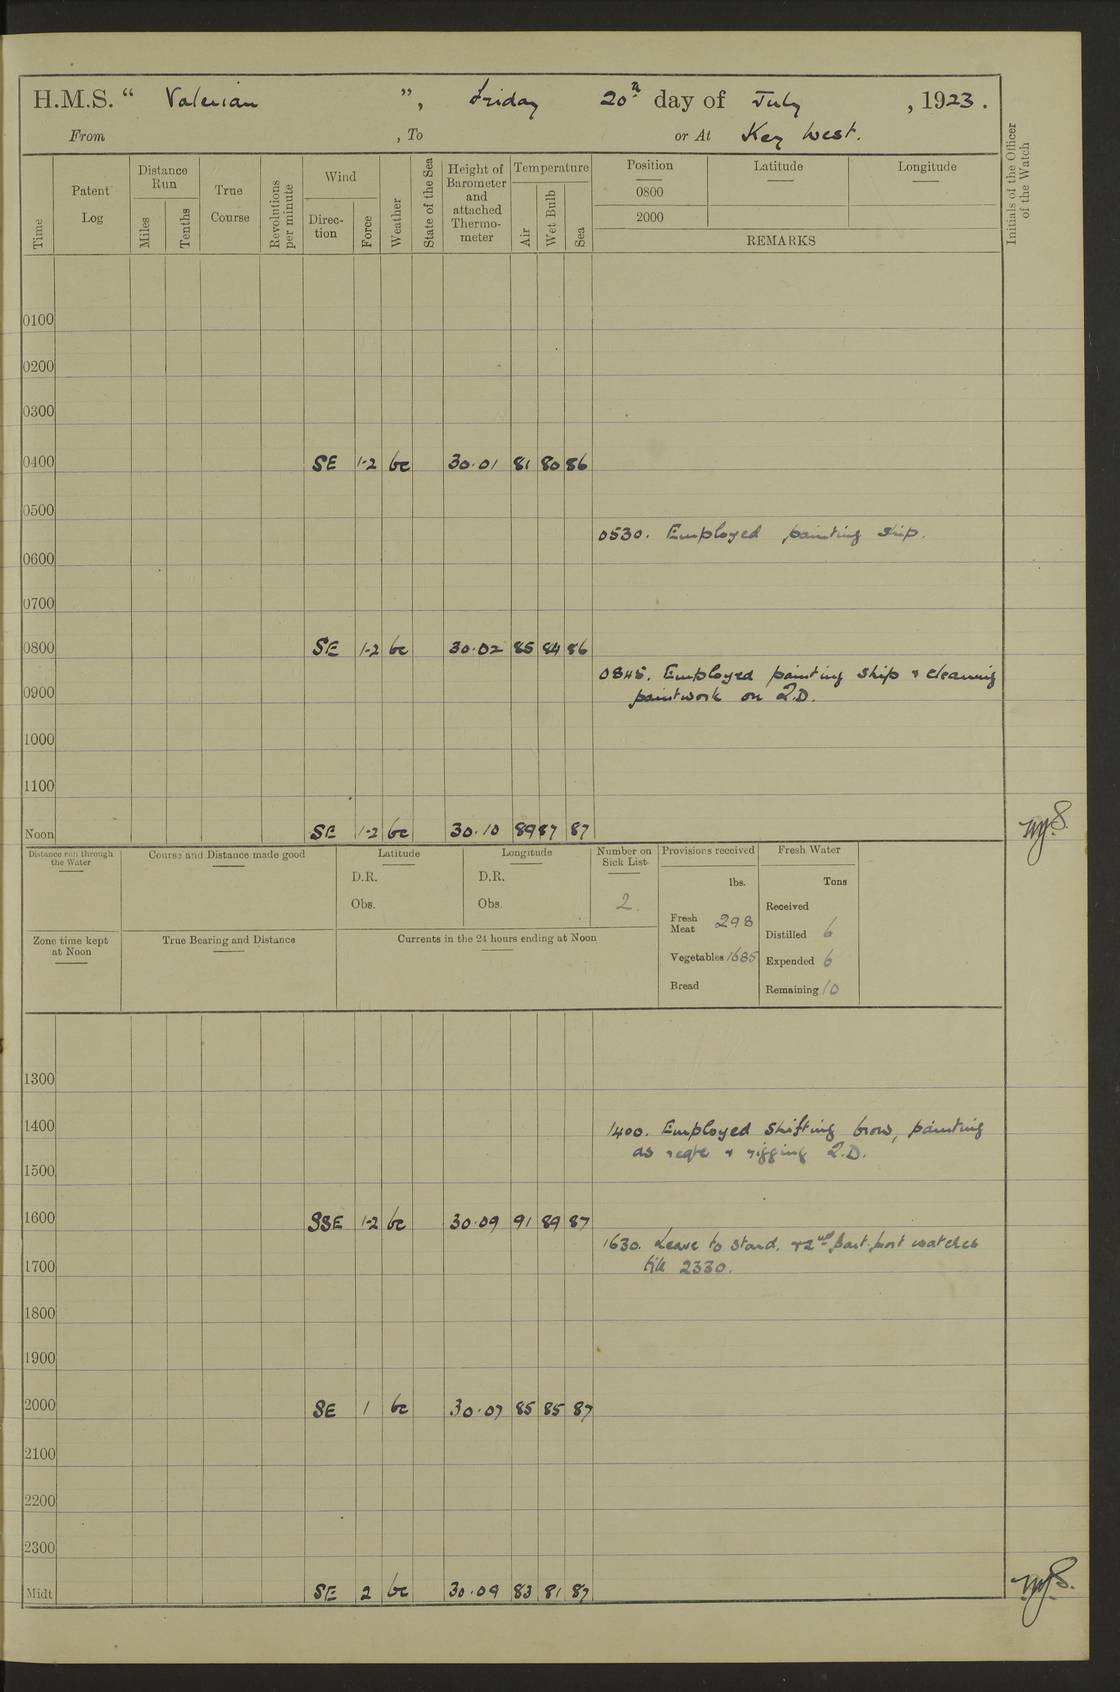 H.M.S. “ Valerian ”, Friday 20th day of July , 1923.
From , To or At Key West.
Time
Patent Log
Distance Run
Miles
Tenths
True Course
Revolutions per minute
Wind
Direc-tion
Force
Weather
State of the Sea
Height of Barometer and attached Thermo-meter
Temperature
Air
Wet Bulb
Sea
Position
0800
2000
Latitude
Longitude
REMARKS
Initials of the Officer of the Watch
0100
0200
0300
0400 SE 1-2 bc 30.01 81 80 86
0500
0530. Employed painting ship.
0600
0700
0800 SE 1-2 bc 30.02 85 84 86
0845. Employed painting ship & cleaning
0900 paintwork on Q.D.
1000
1100
Noon SE 1-2 bc 30.10 89 87 87
Distance run through the Water
Course and Distance made good
Latitude
D.R.
Obs.
Longitude
D.R.
Obs.
Number on Sick List
2
Provisions received
lbs.
Fresh Meat 298
Vegetables 1685
Bread
Fresh Water
Tons
Received
Distilled 6
Expended 6
Remaining 10
Zone time kept at Noon
True Bearing and Distance
Currents in the 24 hours ending at Noon
1300
1400 1400. Employed shifting brow, painting
as reqte & rigging Q.D.
1500
1600 SSE 1-2 bc 30.09 91 89 87
1630. Leave to starbd. & 2nd part port watches
1700 till 2330.
1800
1900
2000 SE 1 bc 30.07 85 85 87
2100
2200
2300
Midt SE 2 bc 30.09 83 81 87